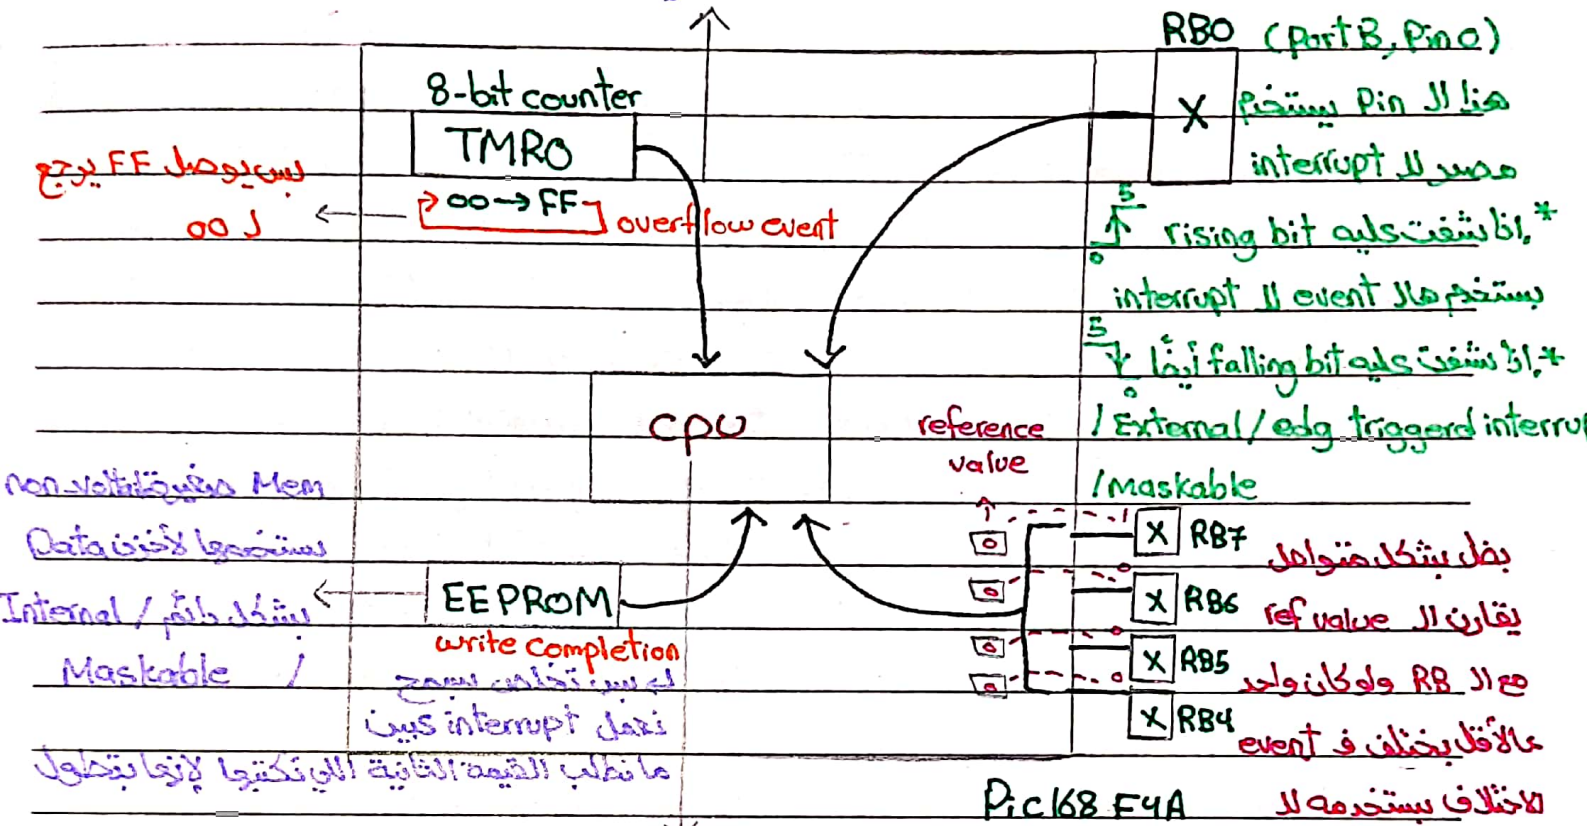 RB0 (Port B, Pin 0)
8-bit counter
TMR0
X
هنا ال Pin يستخدم
مصدر لل interrupt
بس يوصل FF يرجع
ل 00
00 → FF
overflow event
5
0
* إذا شفت عليه rising bit
بستخدم هال event لل interrupt
5
0
* إذا شفت عليه falling bit أيضًا
cpu
reference
value
/ External / edg triggerd interru
/ Maskable
non-volatile Mem
بستخدمها لأخزن Data
بشكل دائم / Internal
Maskable /
EEPROM
write completion
بس تخلص
نعمل interrupt
ما نطلب القيمة الثانية اللي نكتبها لإنها بتطول
0
0
0
0
1
0
0
0
X RB7
X RB6
X RB5
X RB4
بضل بشكل متواصل
يقارن ال ref value
مع ال RB ولو كان واحد
عالأقل بختلف ف event
الاختلاف بستخدمه لل
Pic 168 F4A